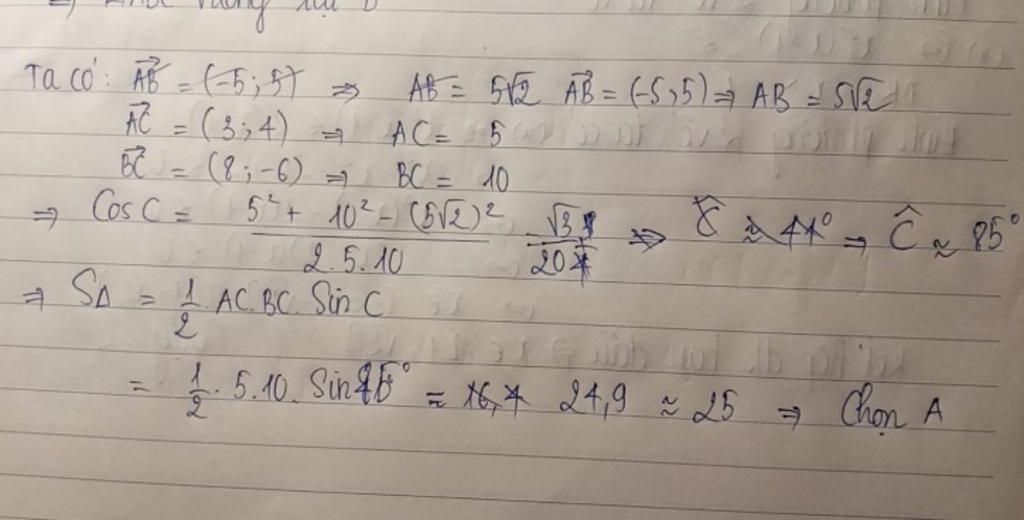 Ta có: AB = (-5; 5) ⇒ AB = 5√2 AB = (-5; 5) ⇒ AB = 5√2
AC = (3; 4) ⇒ AC = 5
BC = (8; -6) ⇒ BC = 10
⇒ Cos C = (5² + 10² - (5√2)²) / (2.5.10) ⇒ Ĉ ≈ 85°
⇒ SΔ = 1/2 . AC. BC. Sin C
= 1/2 . 5.10. Sin ≈ 24,9 ≈ 25 ⇒ Chọn A